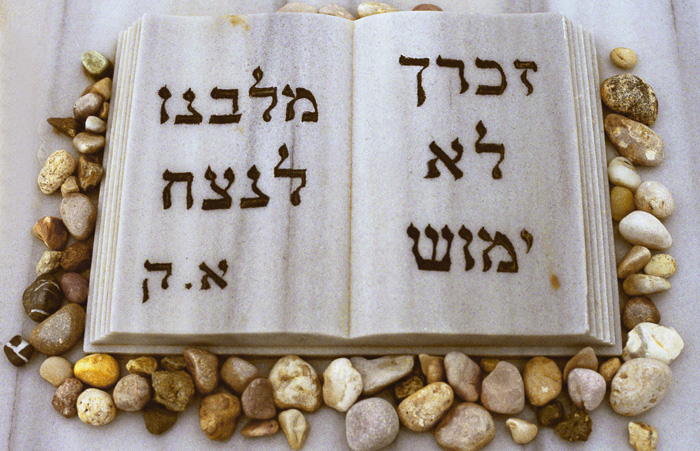 זכרך
לא
ימוש
מלבנו
לנצח
א.ק